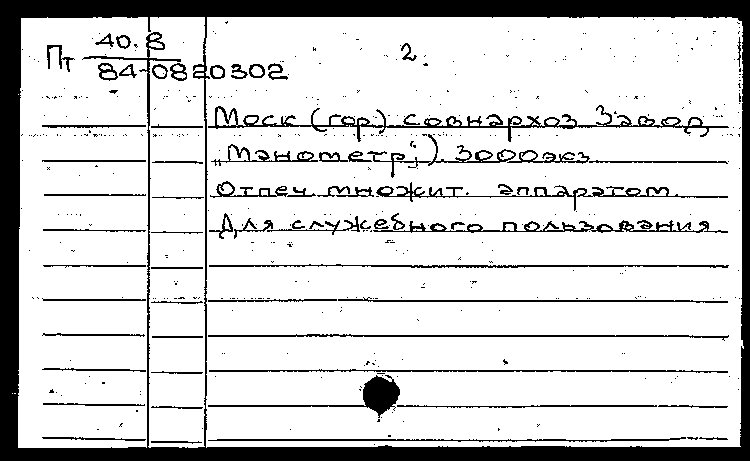 Пт 40.8 2.
84-0820302
Моск (гор.) совнархоз Завод
„Манометр“;). 3000экз.
Отпеч. множит. аппаратом.
Для служебного пользования